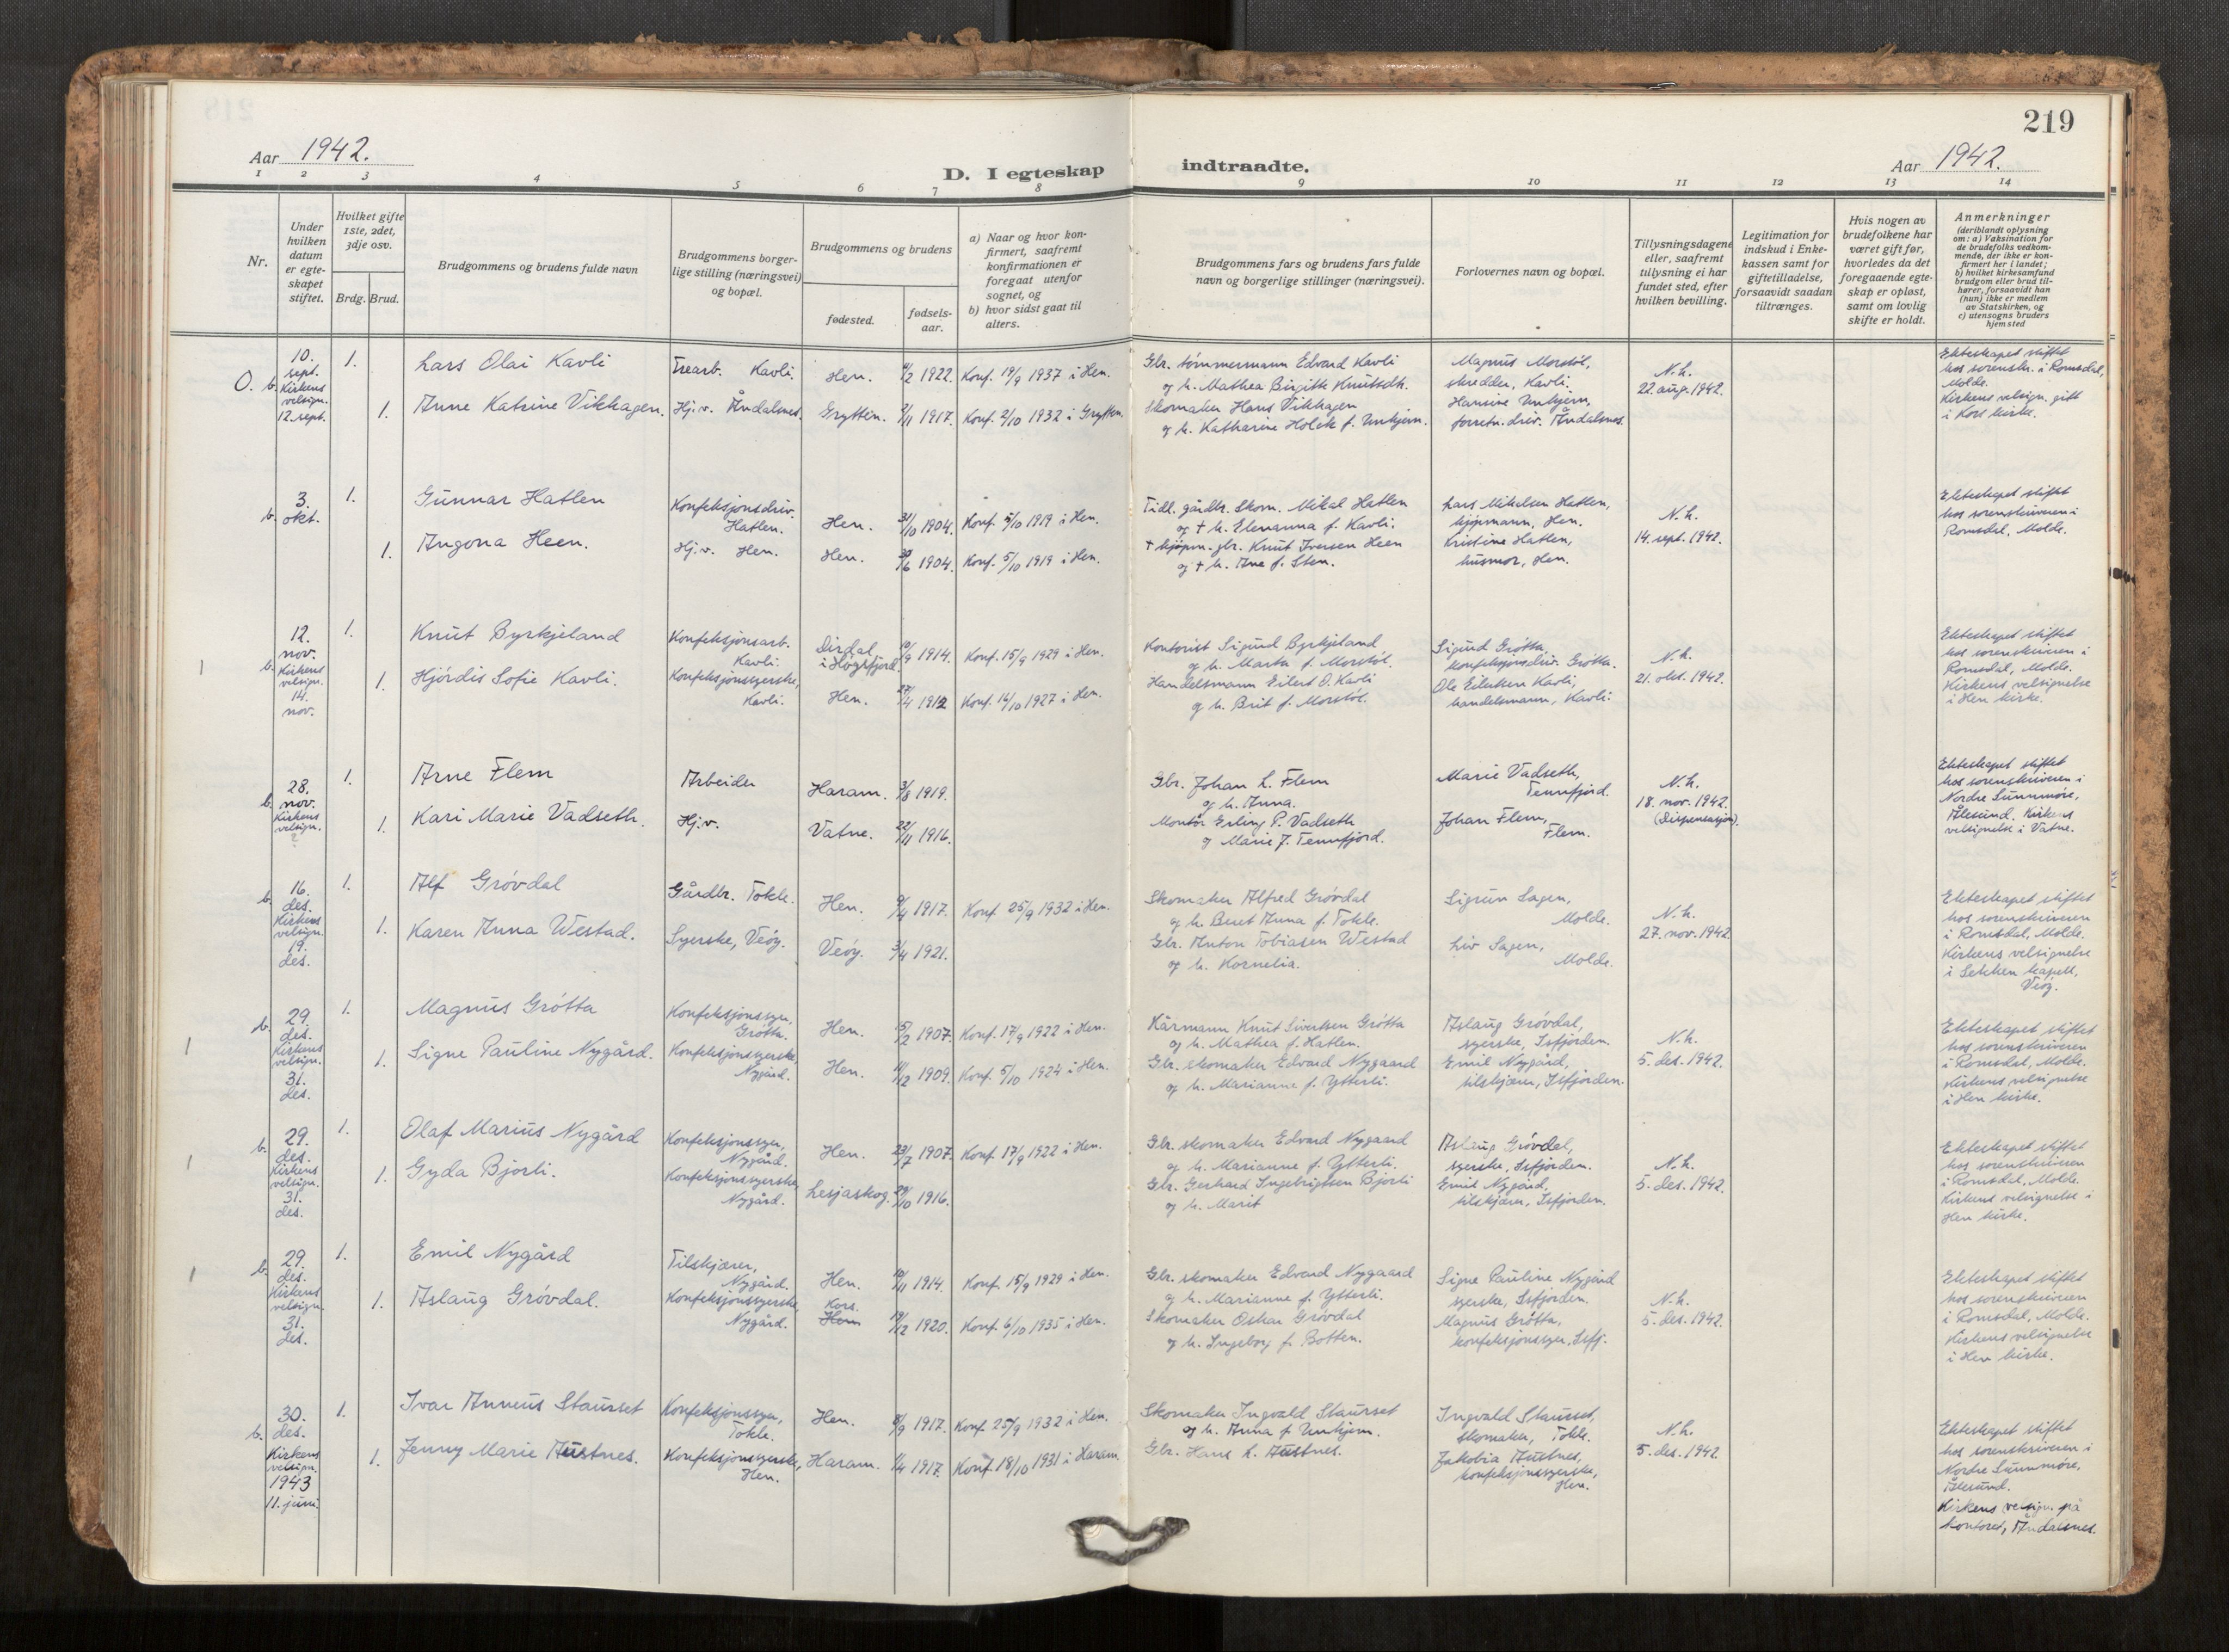 219
Aar 1942.
D. I egteskap indtraadte.
Aar 1942.
1 2 3 4 5 6 7 8 9 10 11 12 13 14
Nr.
Under
hvilken
datum
er egte-
skapet
stiftet.
Hvilket gifte
1ste, 2det,
3dje osv.
Brdg. Brud.
Brudgommens og brudens fulde navn
Brudgommens borger-
lige stilling (næringsvei)
og bopæl.
Brudgommens og brudens
fødested.
fødsels-
aar.
a) Naar og hvor kon-
firmert, saafremt
konfirmationen er
foregaat utenfor
sognet, og
b) hvor sidst gaat til
alters.
Brudgommens fars og brudens fars fulde
navn og borgerlige stillinger (næringsvei).
Forlovernes navn og bopæl.
Tillysningsdagene
eller, saafremt
tillysning ei har
fundet sted, efter
hvilken bevilling.
Legitimation for
indskud i Enke-
kassen samt for
giftetilladelse,
forsaavidt saadan
tiltrænges.
Hvis nogen av
brudefolkene har
været gift før,
hvorledes da det
foregaaende egte-
skap er opløst,
samt om lovlig
skifte er holdt.
Anmerkninger
(deriblandt oplysning
om: a) Vaksination for
de brudefolks vedkom-
mende, der ikke er kon-
firmert her i landet;
b) hvilket kirkesamfund
brudgom eller brud til-
hører, forsaavidt han
(hun) ikke er medlem
av Statskirken, og
c) utensogns bruders
hjemsted
O. b.
10.
sept.
Kirkens
velsign.
12. sept.
1.
Lars Olai Kavli
Trearb. Kavli.
Hen.
/2 1922.
Konf. 19/9 1937 i Hen.
1.
Anne Katrine Vikhagen.
Hj.v. Åndalsnes.
Grytten.
2/11 1917.
Konf. 2/10 1932 i Grytten.
Gbr. tømmermann Edvard Kavli
og h. Mathea Birgitte Knutsdtr.
Skomaker Hans Vikhagen
og h. Katharine Holck f. Unhjem.
Magnus Morstøl,
skredder, Kavli.
Hansine Unhjem,
forretn.driv. Åndalsnes.
N.h.
22. aug. 1942.
Ekteskapet stiftet
hos sorenskr. i Romsdal,
Molde.
Kirkens velsign. gitt
i Kors kirke.
b.
3.
okt.
1.
Gunnar Hatlen
Konfeksjonsdriv.
Hatlen.
Hen.
31/10 1904.
Konf. 5/10 1919 i Hen.
1.
Angona Heen.
Hj.v. Hen.
Hen.
/6 1904.
Konf. 5/10 1919 i Hen.
Tidl. gårdbr. skom. Mikal Hatlen
og † h. Elenanna f. Kavli.
† kjøpm. gbr. Knut Iversen Heen
og † h. Ane f. Sten.
Lars Mikalsen Hatlen,
kjøpmann, Hen.
Kristine Hatlen,
husmor, Hen.
N.h.
14. sept. 1942.
Ekteskapet stiftet
hos sorenskriveren i
Romsdal, Molde.
b.
12.
nov.
Kirkens
velsign.
14.
nov.
1.
Knut Byrkjeland
Konfeksjonsarb.
Kavli.
Dirdal
i Høgsfjord
10/9 1914.
Konf. 15/9 1929 i Hen.
1.
Hjördis Sofie Kavli.
Konfeksjonssyerske,
Kavli.
Hen.
27/4 1912
Konf. 16/10 1927 i Hen.
Kontorist Sigurd Byrkjeland
og h. Marta f. Morstøl.
Handelsmann Eilert O. Kavli
og h. Brit f. Morstøl.
Sigurd Grøtta,
konfeksjonsdriv. Grøtta.
Ole Eilertsen Kavli,
handelsmann, Kavli.
N.h.
21. okt. 1942.
Ekteskapet stiftet
hos sorenskriveren i
Romsdal, Molde.
Kirkens velsignelse
i Hen kirke.
b.
28.
nov.
Kirkens
velsign.
?
1.
Arne Flem
Arbeider
Haram.
3/8 1919.
1.
Kari Marie Vadseth.
Hj.v.
Vatne.
22/11 1916.
Gbr. Johan L. Flem
og h. Anna.
Montør Erling P. Vadseth
og Marie J. Tennfjord.
Marie Vadseth,
Tennfjord.
Johan Flem,
Flem.
N.h.
18. nov. 1942.
(Dispensasjon).
Ekteskapet stiftet
hos sorenskriveren i
Nordre Sunnmøre,
Ålesund. Kirkens
velsignelse i Vatne.
b.
16.
des.
Kirkens
velsign.
19.
des.
1.
Alf Grövdal
Gårdbr. Tokle.
Hen.
9/4 1917.
Konf. 25/9 1932 i Hen.
1.
Karen Anna Westad.
Syerske, Veöy.
Veöy.
3/4 1921.
Skomaker Alfred Grövdal
og h. Beret Anna f. Tokle.
Gbr. Anton Tobiasen Westad
og h. Kornelia.
Sigrun Sagen,
Molde.
Liv Sagen,
Molde.
N.h.
27. nov. 1942
Ekteskapet stiftet
hos sorenskriveren
i Romsdal, Molde.
Kirkens velsignelse
i Sekken kapell,
Veöy.
b.
29.
des.
Kirkens
velsign.
31.
des.
1.
Magnus Grötta
Konfeksjonssyer,
Grötta.
Hen.
15/2 1907.
Konf. 17/9 1922 i Hen.
1.
Signe Pauline Nygård.
Konfeksjonssyerske
Nygård.
Hen.
11/12 1909.
Konf. 5/10 1924 i Hen.
Kårmann Knut Sivertsen Grötta
og h. Mathea f. Hatlen.
Gbr. skomaker Edvard Nygaard
og h. Marianne f. Ytterli.
Aslaug Grövdal,
syerske, Isfjorden.
Emil Nygård,
tilskjærer, Isfjorden.
N.h.
5. des. 1942.
Ekteskapet stiftet
hos sorenskriveren
i Romsdal, Molde.
Kirkens velsignelse
i Hen kirke.
b.
29.
des.
Kirkens
velsign.
31.
des.
1.
Olaf Marius Nygård
Konfeksjonssyer,
Nygård.
Hen.
23/7 1907.
Konf. 17/9 1922 i Hen.
1.
Gyda Bjorli.
Konfeksjonssyerske
Nygård.
Lesjaskog.
29/10 1916.
Gbr. skomaker Edvard Nygaard
og h. Marianne f. Ytterli.
Gbr. Gerhard Ingebrigtsen Bjorli
og h. Marit
Aslaug Grövdal,
syerske, Isfjorden.
Emil Nygård,
tilskjærer, Isfjorden.
N.h.
5. des. 1942.
Ekteskapet stiftet
hos sorenskriveren
i Romsdal, Molde.
Kirkens velsignelse i
Hen kirke.
b.
29.
des.
Kirkens
velsign.
31.
des.
1.
Emil Nygård
Tilskjærer,
Nygård.
Hen.
10/11 1914.
Konf. 15/9 1929 i Hen.
1.
Aslaug Grövdal.
Konfeksjonssyerske,
Nygård.
Kors.
Hen
19/12 1920.
Konf. 6/10 1935 i Hen.
Gbr. skomaker Edvard Nygaard
og h. Marianne f. Ytterli.
Skomaker Oskar Grövdal
og h. Ingeborg f. Botten.
Signe Pauline Nygård
syerske, Isfjorden.
Magnus Grötta,
konfeksjonssyer, Isfj.
N.h.
5. des. 1942.
Ekteskapet stiftet
hos sorenskriveren
i Romsdal, Molde.
Kirkens velsignelse
i Hen kirke.
b.
30.
des.
Kirkens
velsign.
1943
11. juni.
1.
Ivar Anneus Staurset
Konfeksjonssyer,
Tokle.
Hen.
8/9 1917.
Konf. 25/9 1932 i Hen.
1.
Jenny Marie Austnes.
Konfeksjonssyerske,
Hen.
Haram.
1/4 1917.
Konf. 18/10 1931 i Haram.
Skomaker Ingvald Staurset
og h. Anna f. Unhjem.
Gbr. Hans L. Austnes.
Ingvald Staurset,
skomaker, Tokle.
Jakobia Austnes,
konfeksjonssyerske,
Hen.
N.h.
5. des. 1942.
Ekteskapet stiftet
hos sorenskriveren i
Nordre Sunnmøre,
Ålesund.
Kirkens velsign. på
kontoret, Åndalsnes.